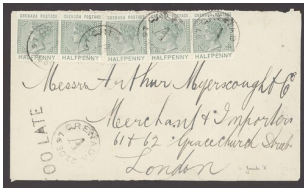 GRENADA POSTAGE GRENADA POSTAGE GRENADA POSTAGE GRENADA POSTAGE GRENADA POSTAGE
HALFPENNY HALFPENNY HALFPENNY HALFPENNY HALFPENNY
Messrs Arthur Myerscought & Co
Merchants & Importers
61 & 62 Gracechurch Street
London
TOO LATE
GRENADA
A